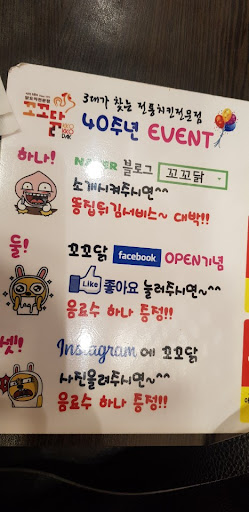 꼬꼬닭
DAK
3대가 찾는 전통치킨전문점
40주년 EVENT
하나!
NAVER 블로그 꼬꼬닭
소개시켜주시면^^
똥집튀김서비스~ 대박!!
둘!
꼬꼬닭 facebook OPEN기념
Like 좋아요 눌러주시면~^^
음료수 하나 증정!!
셋!
Instagram 에 꼬꼬닭
사진올려주시면^^
음료수 하나 증정!!